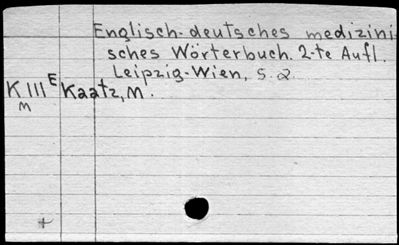 Englisch-deutsches medizini-
sches Wörterbuch. 2-te Aufl.
Leipzig-Wien, S. a.
K III E Kaatz, M.
M
+